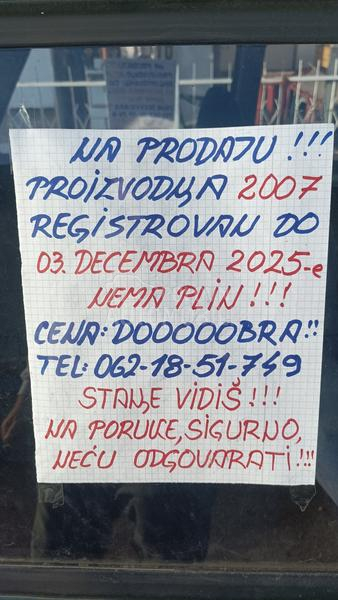 NA PRODAJU !!!
PROIZVODNJA 2007
REGISTROVAN DO
03. DECEMBRA 2025-e
NEMA PLIN !!!
CENA: DOOOOOBRA!!
TEL: 062-18-51-749
STANJE VIDIŠ !!!
NA PORUKE, SIGURNO,
NEĆU ODGOVARATI !!!